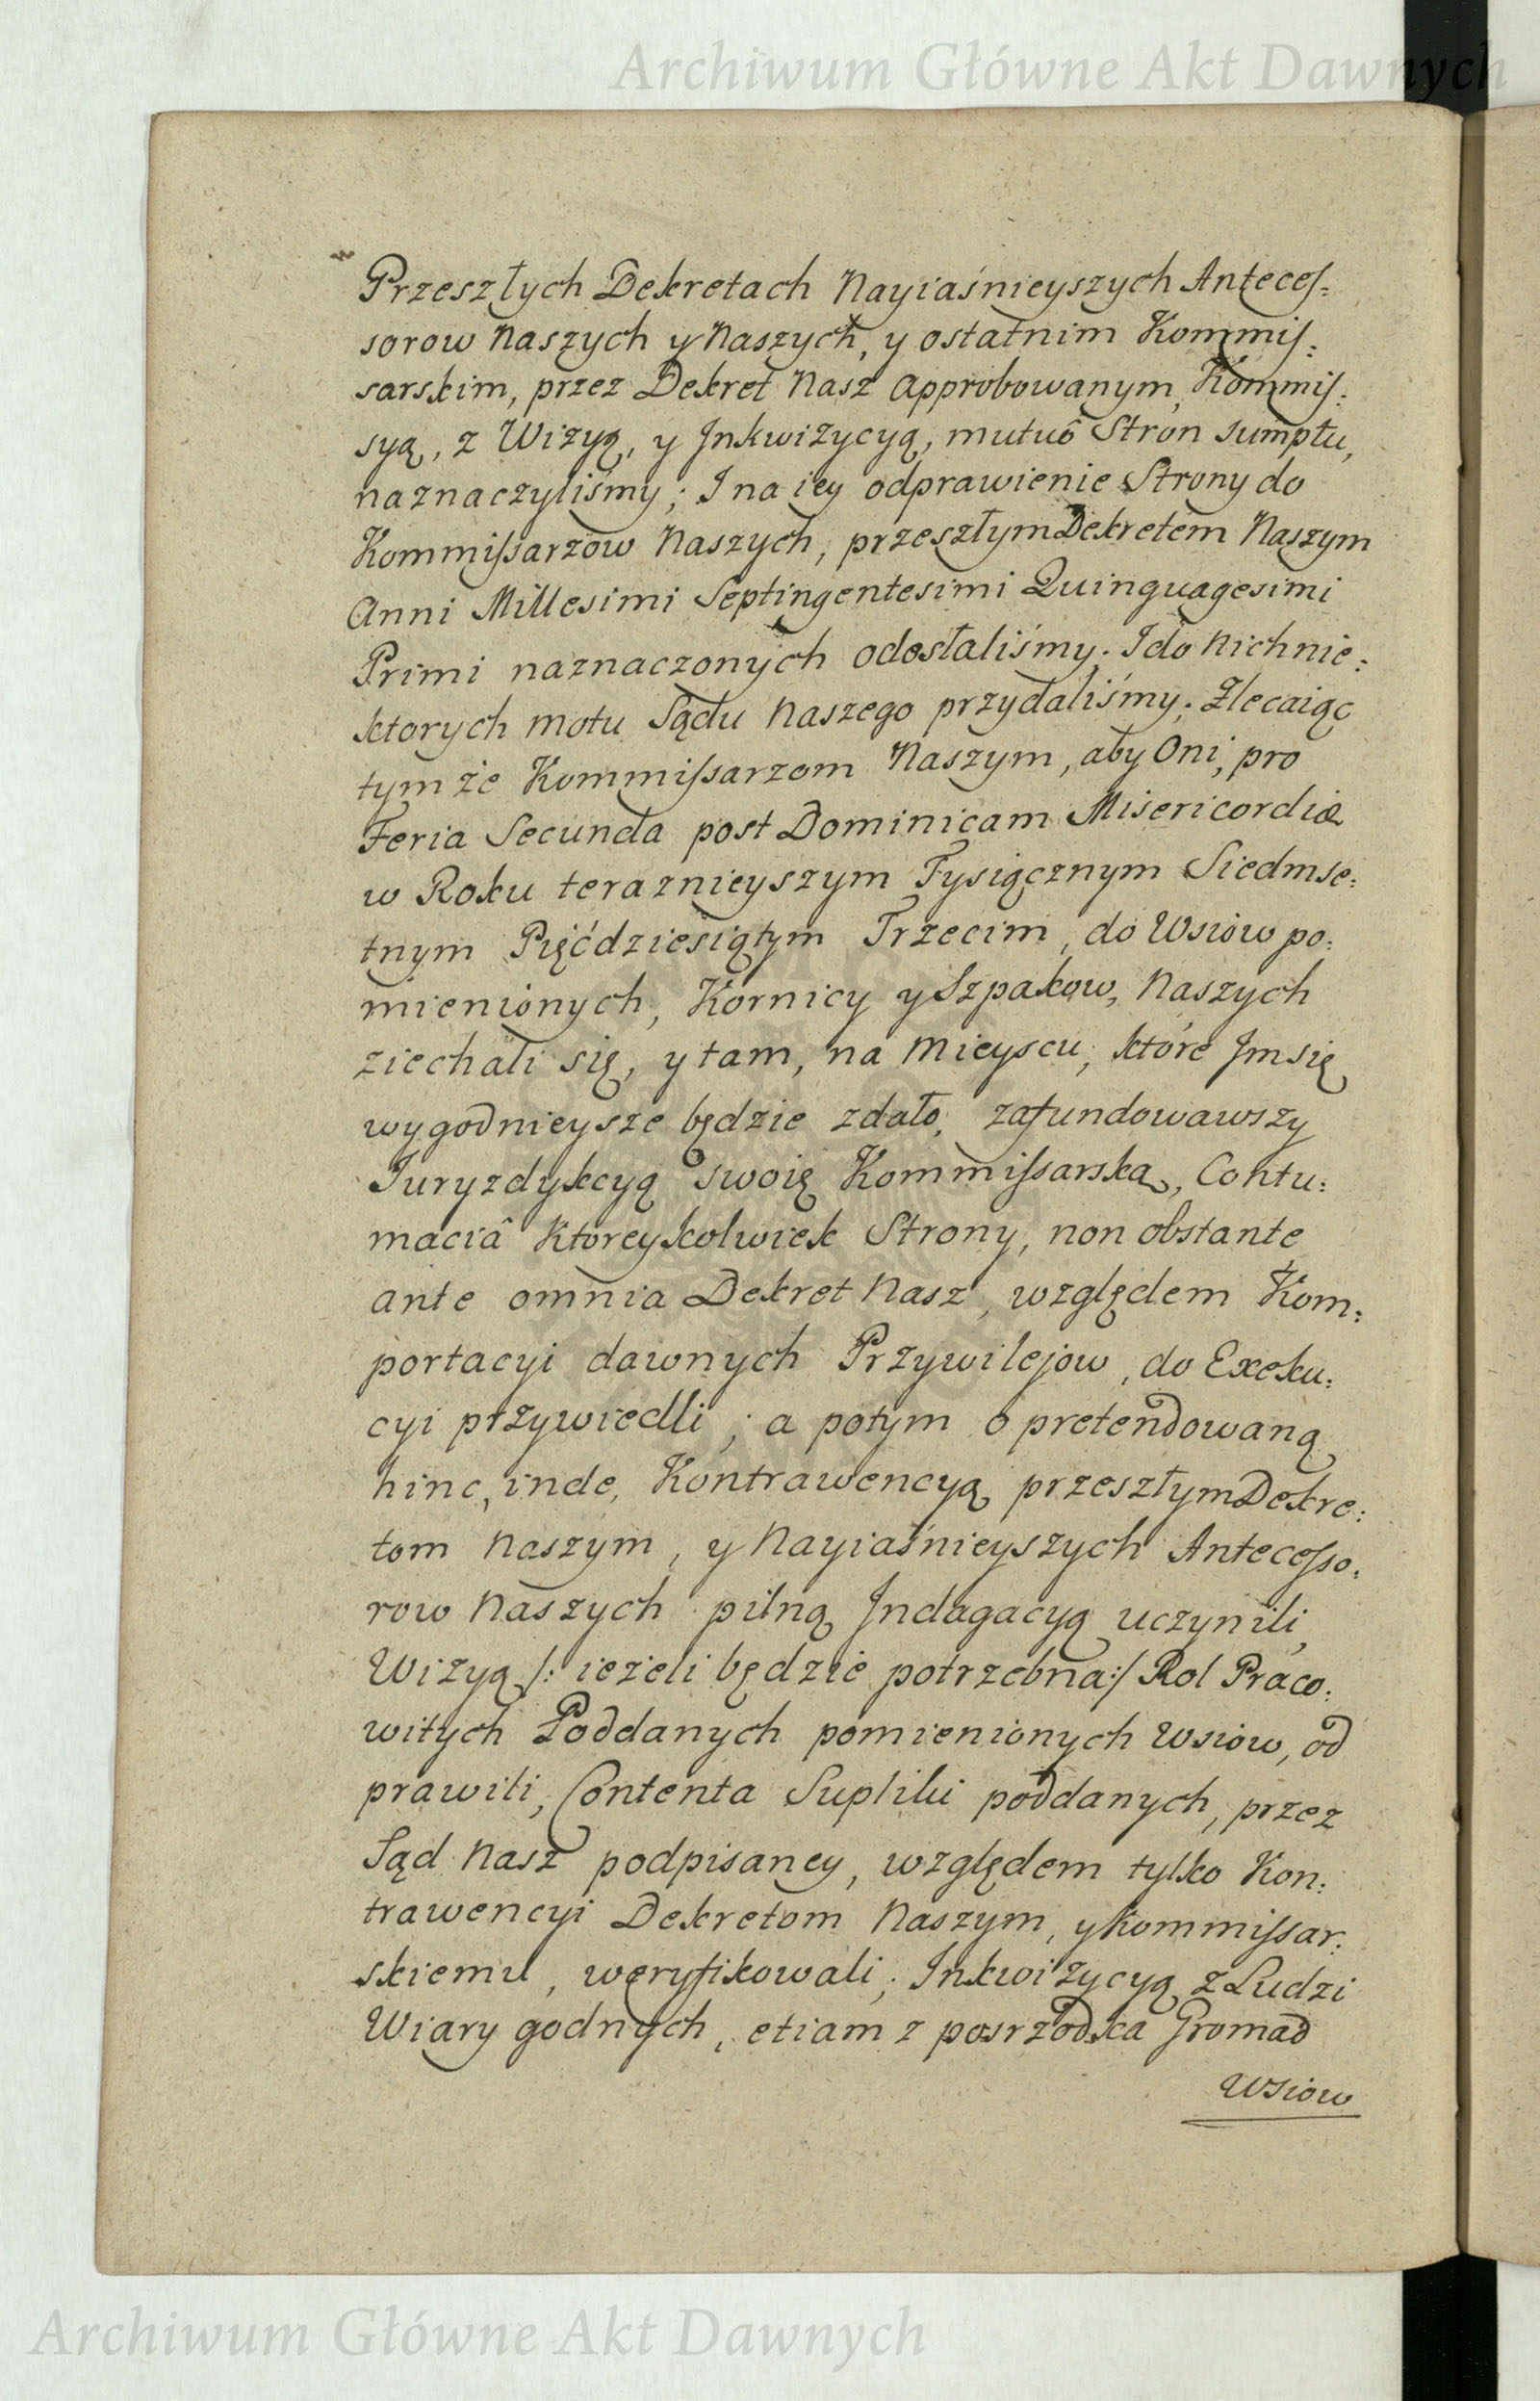 Archiwum Główne Akt Dawnych
Przeszłych Dekretach Nayiaśnieyszych Anteceſ:
sorow Naszych y Naszych, y ostatnim Kommiſ:
sarskim, przez Dekret Nasz approbowanym, Kommiſ:
syą, z Wizyą, y Jnkwizycyą, mutuô Stron sumptu,
naznaczyliśmy; I na iey odprawienie Strony do
Kommiſsarzow Naszych, przeszłym Dekretem Naszym
Anni Millesimi Septingentesimi Quinquagesimi
Primi naznaczonych odosłaliśmy. I do Nich nie:
ktorych motu Sądu Naszego przydaliśmy; Zlecaiąc
tym że Kommiſsarzom Naszym, aby Oni, pro
Feria Secunda post Dominicam Misericordiæ
w Roku teraznieyszym Tysiącznym Siedmse:
tnym Pięćdziesiątym Trzecim, do Wsiow po:
mienionych, Kornicy y Szpakow, Naszych
ziechali się, y tam, na Mieyscu, które Jm się
wygodnieysze będzie zdało, zafundowawszy
Juryzdykcyą swoię Kommiſsarską, Contu:
maciâ Ktoreykolwiek Strony, non obstante
ante omnia Dekret Nasz, względem Kom:
portacyi dawnych Przywilejow, do Exeku:
cyi przywiedli; a potym o pretendowaną
hinc, inde, Kontrawencyą przeszłym Dekre:
tom Naszym, y Nayiaśnieyszych Anteceſso:
row Naszych pilną Jndagacyą uczynili,
Wizyą /: ieżeli będzie potrzebna :/ Rol Praco:
witych Poddanych pomienionych Wsiow, od
prawili, Contenta Supliki poddanych, przez
Sąd Nasz podpisaney, względem tylko Kon:
trawencyi Dekretom Naszym, y Kommiſsar:
skiemu, weryfikowali; Jnkwizycyą z Ludzi
Wiary godnych, etiam z posrzodka Gromad
Wsiow
Archiwum Główne Akt Dawnych